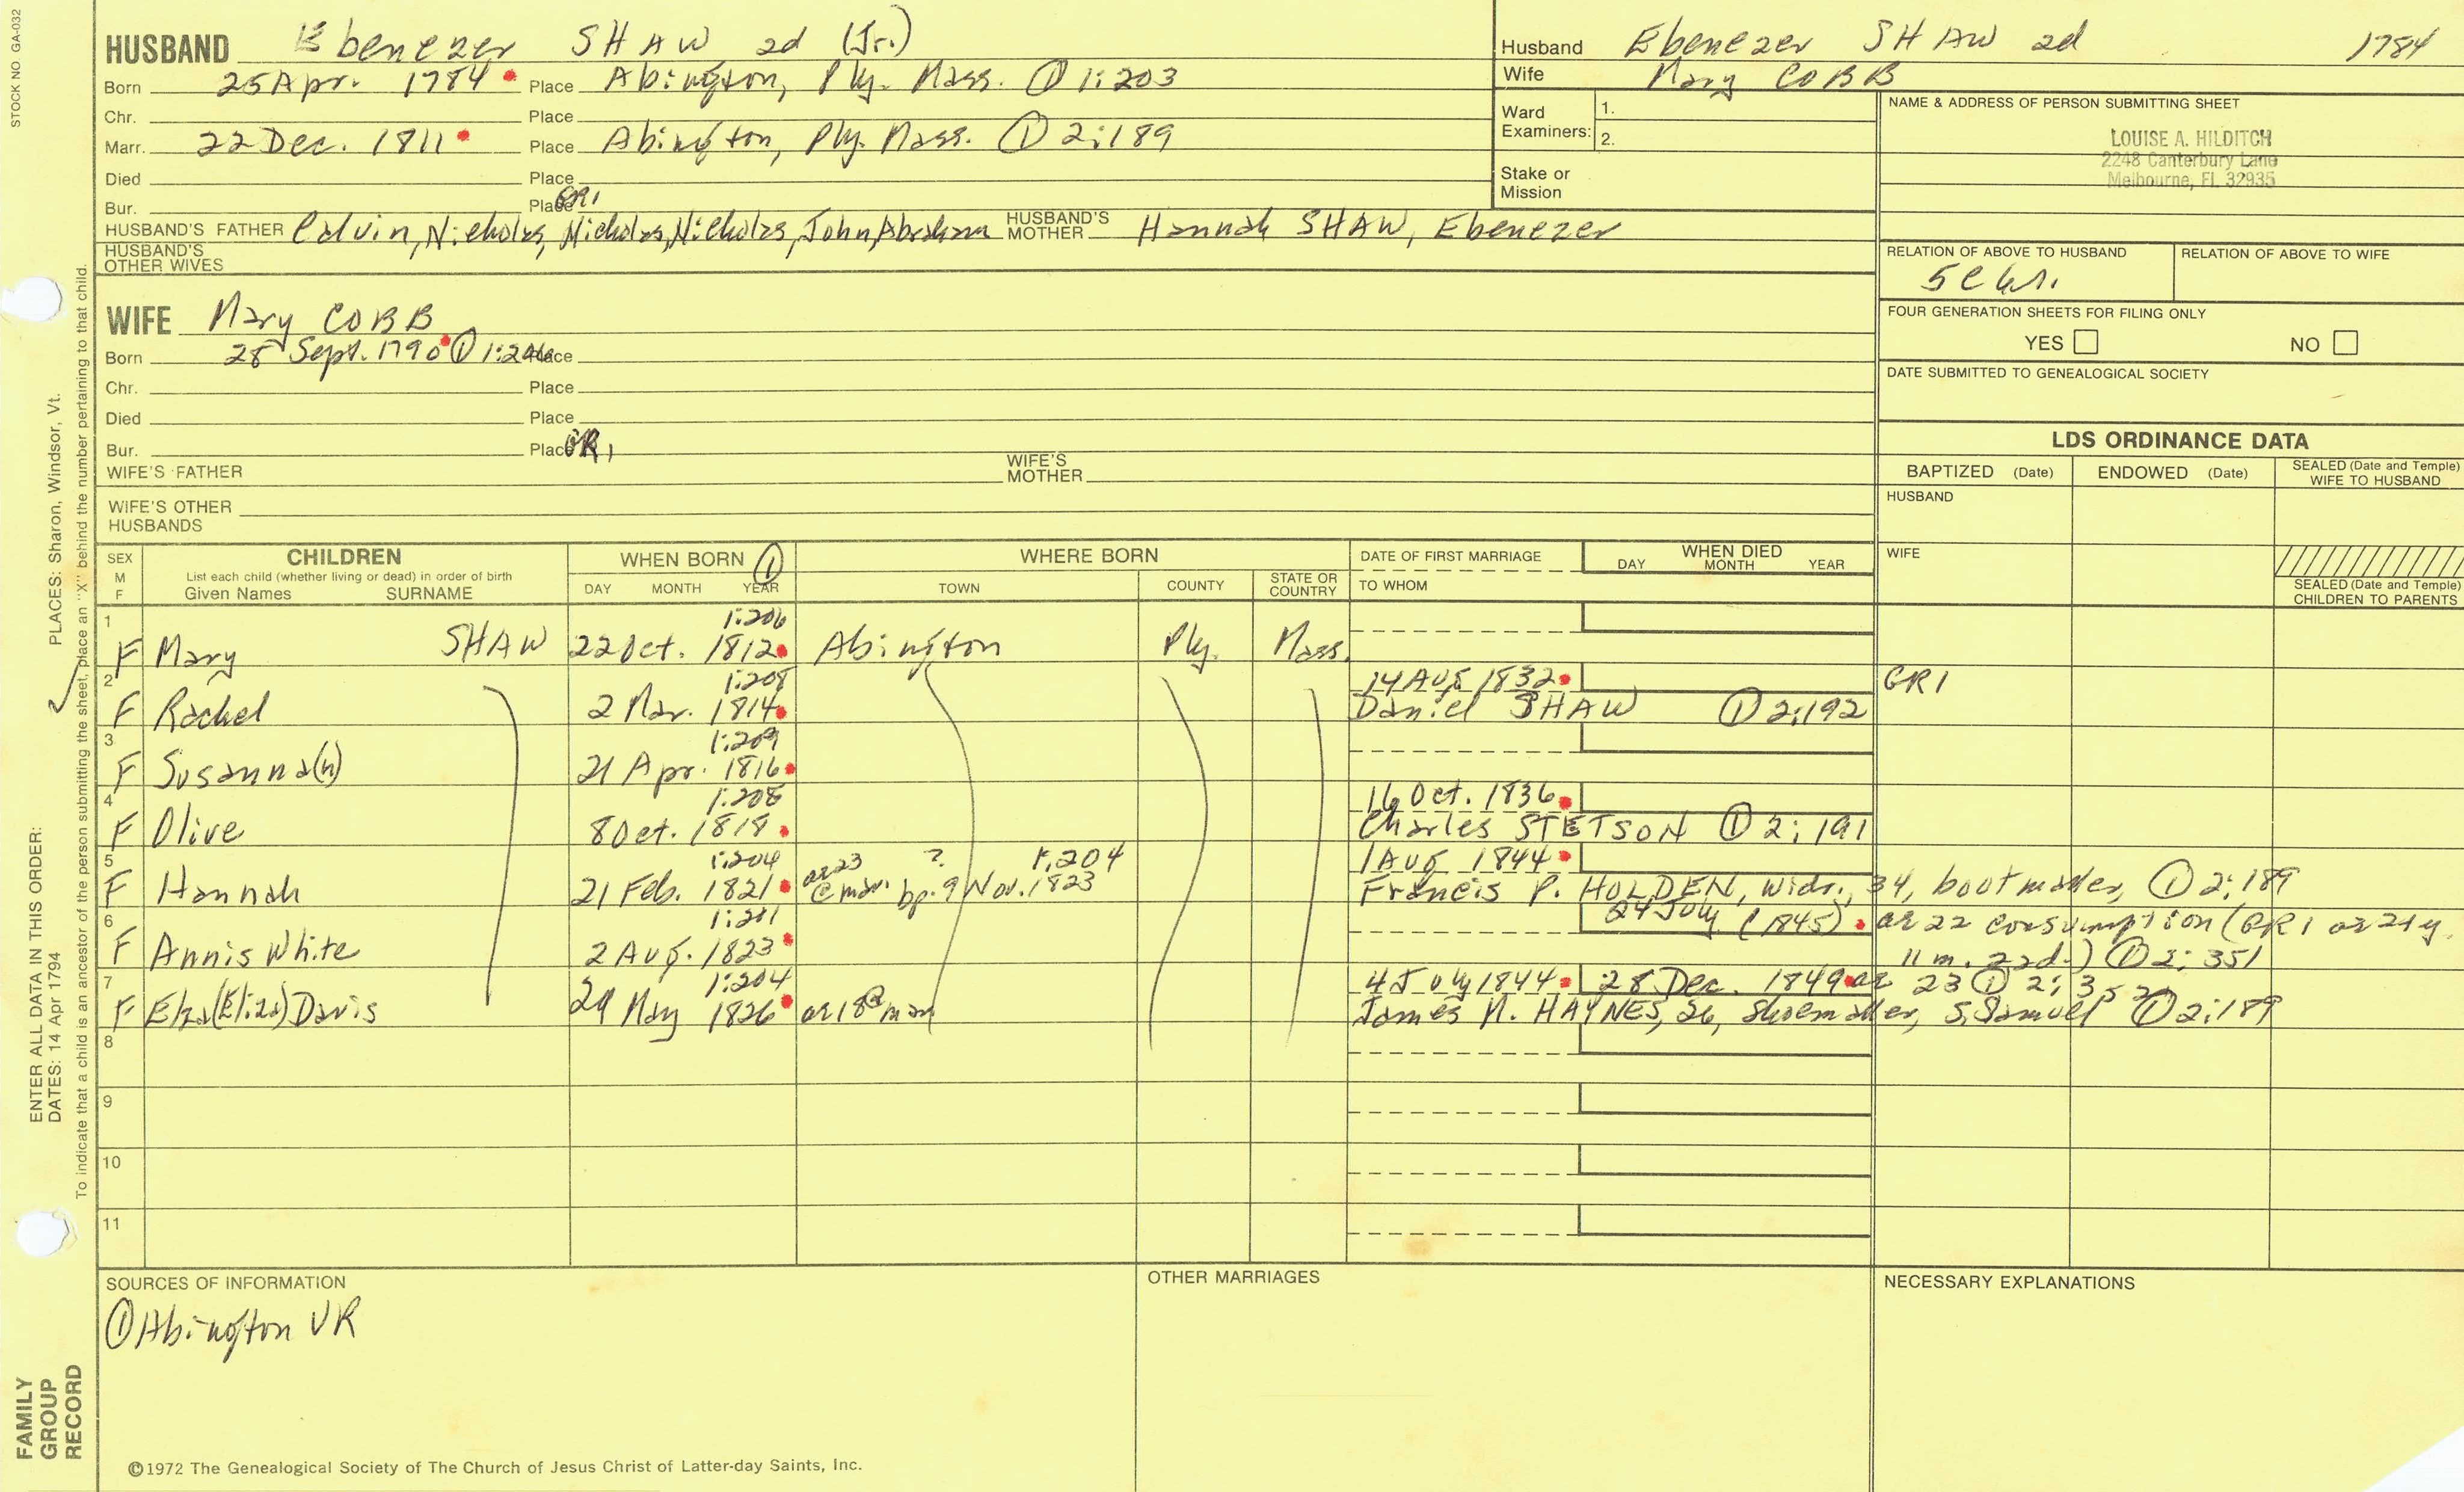 STOCK NO GA-032
HUSBAND Ebenezer SHAW 2d (Jr.)
Born 25 Apr. 1784 Place Abington, Ply. Mass. ① 1:203
Chr. Place
Marr. 22 Dec. 1811 Place Abington, Ply. Mass. ① 2:189
Died Place
Bur. Place GR1
HUSBAND'S FATHER Calvin, Nicholas, Nicholas, Nicholas, John, Abraham HUSBAND'S MOTHER Hannah SHAW, Ebenezer
HUSBAND'S OTHER WIVES
WIFE Mary COBB
Born 28 Sept. 1790 ① 1:206 Place
Chr. Place
Died Place
Bur. Place GR1
WIFE'S FATHER WIFE'S MOTHER
WIFE'S OTHER HUSBANDS
Husband Ebenezer SHAW 2d 1784
Wife Mary COBB
Ward Examiners: 1.
2.
Stake or Mission
NAME & ADDRESS OF PERSON SUBMITTING SHEET
LOUISE A. HILDITCH
2248 Canterbury Lane
Melbourne, FL 32935
RELATION OF ABOVE TO HUSBAND RELATION OF ABOVE TO WIFE
FOUR GENERATION SHEETS FOR FILING ONLY
YES NO
DATE SUBMITTED TO GENEALOGICAL SOCIETY
LDS ORDINANCE DATA
BAPTIZED (Date) ENDOWED (Date) SEALED (Date and Temple) WIFE TO HUSBAND
HUSBAND
WIFE
SEALED (Date and Temple) CHILDREN TO PARENTS
SEX M F
CHILDREN
List each child (whether living or dead) in order of birth
Given Names SURNAME
WHEN BORN ①
DAY MONTH YEAR
WHERE BORN
TOWN COUNTY STATE OR COUNTRY
DATE OF FIRST MARRIAGE
TO WHOM
WHEN DIED
DAY MONTH YEAR
1 1:206
F Mary SHAW 22 Oct. 1812 Abington Ply. Mass.
2 1:208 14 Aug 1832 GR1
F Rachel 2 Mar. 1814 Daniel SHAW ① 2:192
3 1:209
F Susanna(h) 21 Apr. 1816
4 1:208 16 Oct. 1836
F Olive 8 Oct. 1818 Charles STETSON ① 2:191
5 1:204 ae 23 ? 1:204 1 Aug 1844
F Hannah 21 Feb. 1821 @ mar. bp. 9 Nov. 1823 Francis P. HOLDEN, widr., 34, bootmaker, ① 2:189
6 1:201 24 July (1845) ae 22 consumption (GR1 ae 21 y.
F Annis White 2 Aug. 1823 11 m. 22d.) ① 2:351
7 1:204 4 July 1844 28 Dec. 1849 ae 23 ① 2:352
F Elza (Eliza) Davis 29 May 1826 ae 18 @ mar James N. HAYNES, 26, shoemaker, s. Samuel ① 2:189
8
9
10
11
SOURCES OF INFORMATION
① Abington VR
OTHER MARRIAGES
NECESSARY EXPLANATIONS
©1972 The Genealogical Society of The Church of Jesus Christ of Latter-day Saints, Inc.
FAMILY GROUP RECORD
ENTER ALL DATA IN THIS ORDER:
DATES: 14 Apr 1794
PLACES: Sharon, Windsor, Vt.
To indicate that a child is an ancestor of the person submitting the sheet, place an "X" behind the number pertaining to that child.